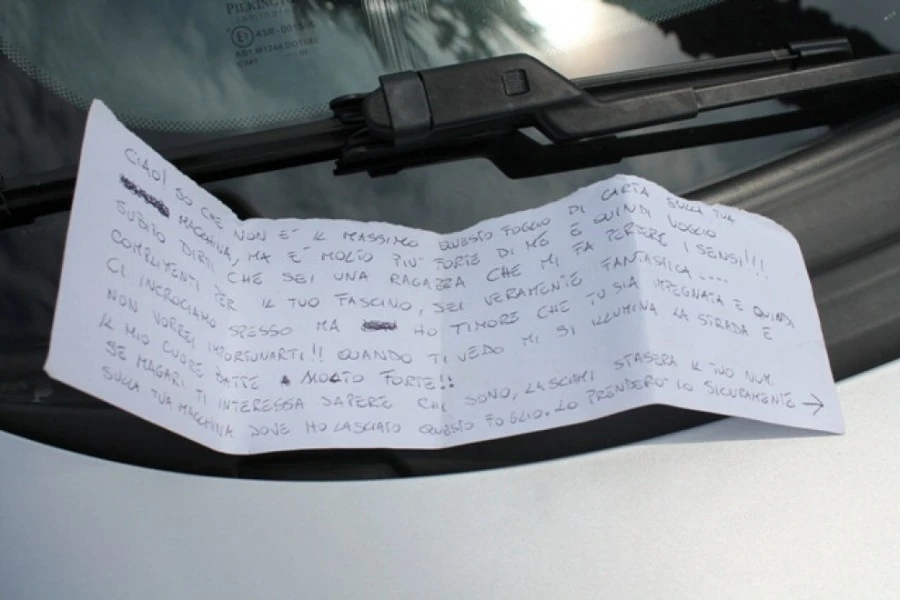 PILKINGTON
CIAO! SO CHE NON È IL MASSIMO QUESTO FOGLIO DI CARTA SULLA TUA
MACCHINA, MA È MOLTO PIÙ FORTE DI ME E QUINDI VOGLIO
SUBITO DIRTI CHE SEI UNA RAGAZZA CHE MI FA PERDERE I SENSI!!!
COMPLIMENTI PER IL TUO FASCINO, SEI VERAMENTE FANTASTICA....
CI INCROCIAMO SPESSO MA HO TIMORE CHE TU SIA IMPEGNATA E QUINDI
NON VORREI IMPORTUNARTI!! QUANDO TI VEDO MI SI ILLUMINA LA STRADA E
IL MIO CUORE BATTE MOLTO FORTE!!
SE MAGARI TI INTERESSA SAPERE CHI SONO, LASCIAMI STASERA IL TUO NUM.
SULLA TUA MACCHINA DOVE HO LASCIATO QUESTO FOGLIO. LO PRENDERO' IO SICURAMENTE →